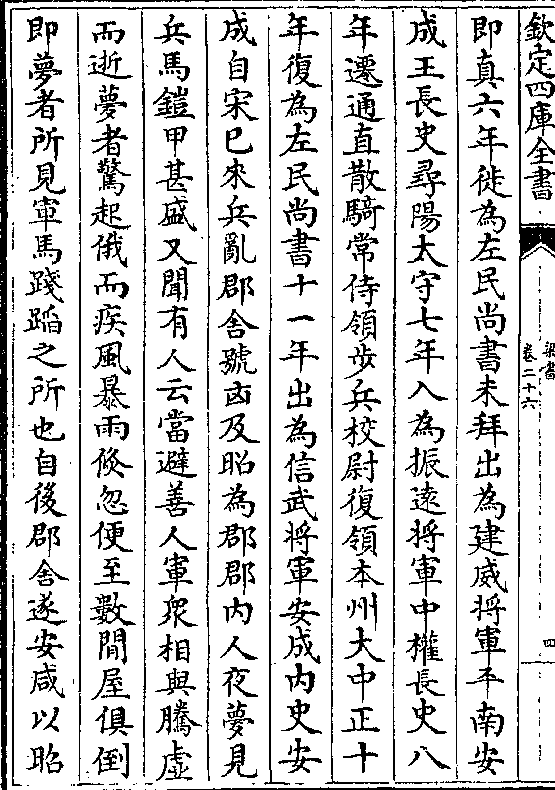 欽定四庫全書
梁書
卷二十六
四
即真六年徙為左民尚書未拜出為建威將軍平南安
成王長史尋陽太守七年入為振遠將軍中權長史八
年遷通直散騎常侍領步兵校尉復領本州大中正十
年復為左民尚書十一年出為信武將軍安成内史安
成自宋已來兵亂郡舍號凶及昭為郡郡内人夜夢見
兵馬鎧甲甚盛又聞有人云當避善人軍衆相與騰虛
而逝夢者驚起俄而疾風暴雨倐忽便至數間屋俱倒
即夢者所見軍馬踐蹈之所也自後郡舍遂安咸以昭